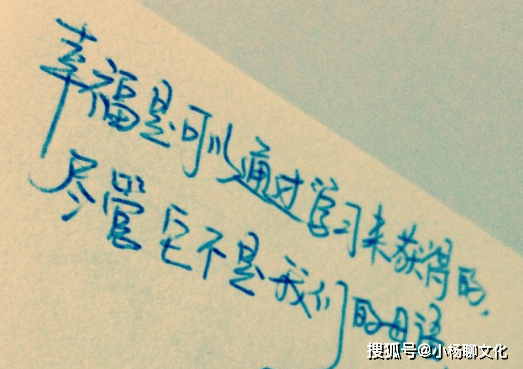 幸福是可以通过学习来获得的,
尽管它不是我们的母语
搜狐号@小杨聊文化